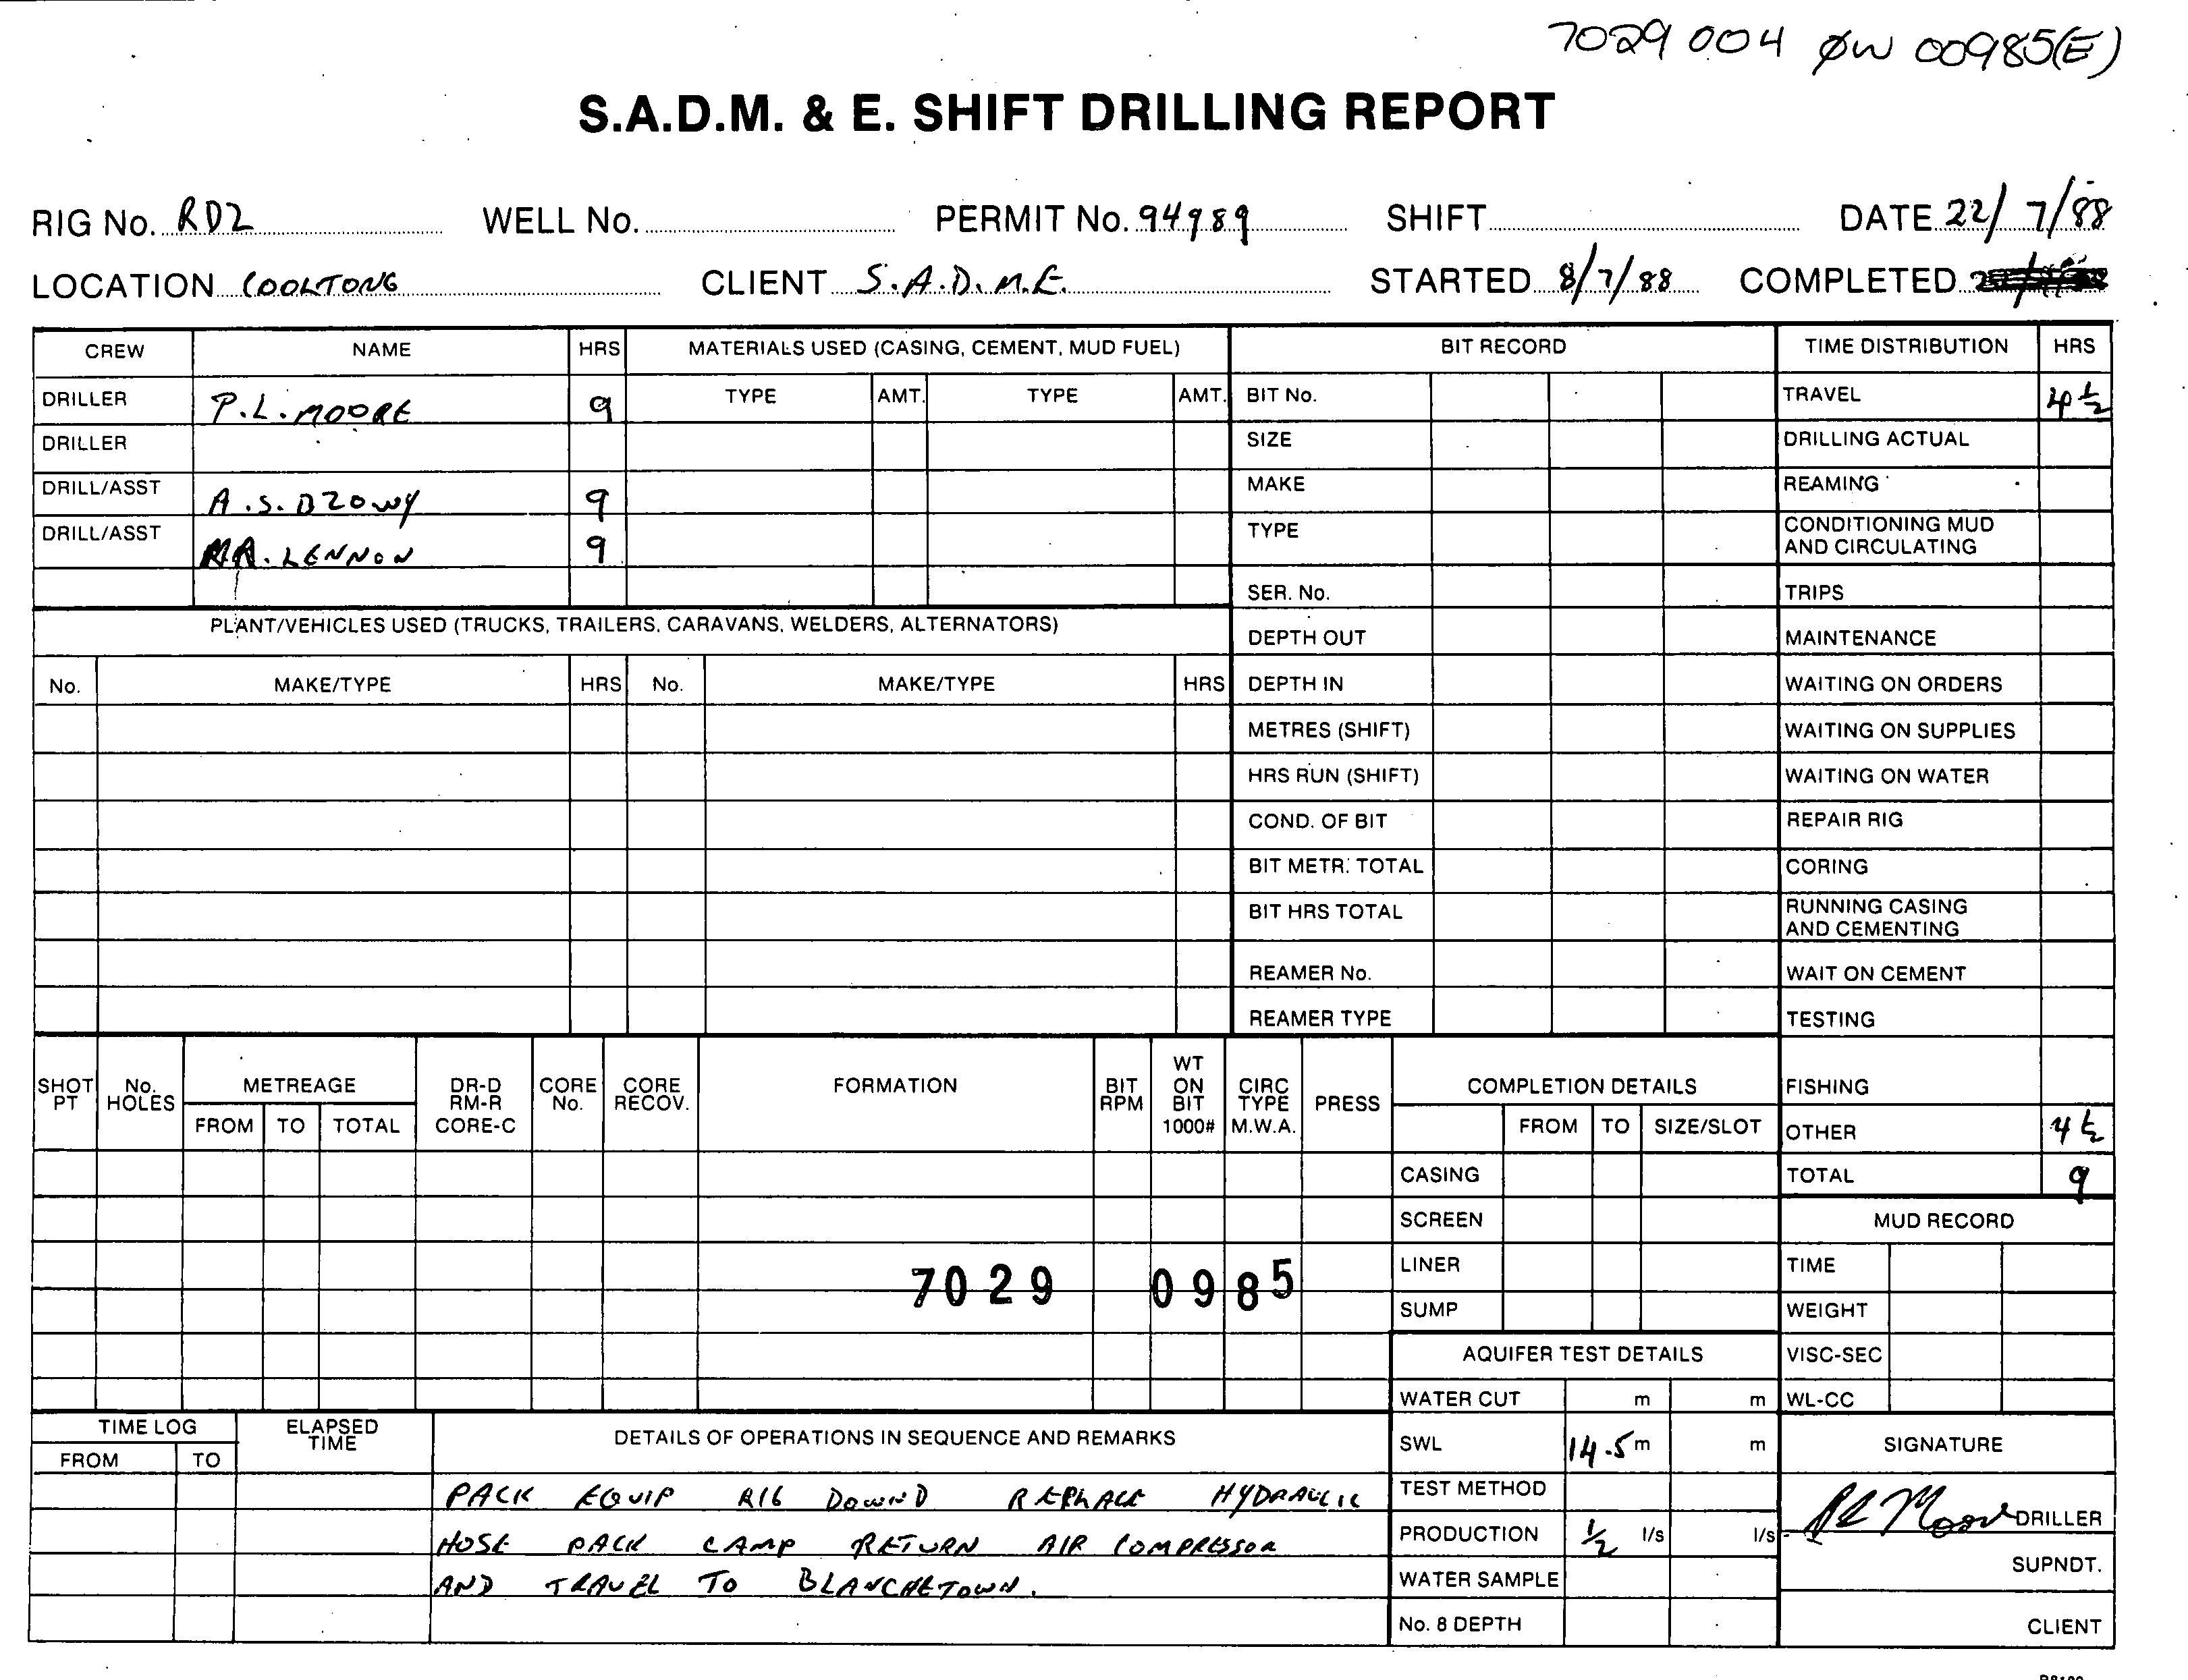 7029 004 ØW 00985(E)
S.A.D.M. & E. SHIFT DRILLING REPORT
RIG No. RD2 WELL No. PERMIT No. 94989 SHIFT DATE 22/7/88
LOCATION COOLTONG CLIENT S.A.D.M.E. STARTED 8/7/88 COMPLETED
CREW NAME HRS MATERIALS USED (CASING, CEMENT, MUD FUEL) BIT RECORD TIME DISTRIBUTION HRS
DRILLER P.L. MOORE 9 TYPE AMT. TYPE AMT. BIT No. TRAVEL 4 1/2
DRILLER SIZE DRILLING ACTUAL
DRILL/ASST A.S. BZOWY 9 MAKE REAMING
DRILL/ASST LENNON 9 TYPE CONDITIONING MUD
AND CIRCULATING
SER. No. TRIPS
PLANT/VEHICLES USED (TRUCKS, TRAILERS, CARAVANS, WELDERS, ALTERNATORS) DEPTH OUT MAINTENANCE
No. MAKE/TYPE HRS No. MAKE/TYPE HRS DEPTH IN WAITING ON ORDERS
METRES (SHIFT) WAITING ON SUPPLIES
HRS RUN (SHIFT) WAITING ON WATER
COND. OF BIT REPAIR RIG
BIT METR. TOTAL CORING
BIT HRS TOTAL RUNNING CASING
AND CEMENTING
REAMER No. WAIT ON CEMENT
REAMER TYPE TESTING
SHOT PT No. HOLES METREAGE DR-D RM-R CORE-C CORE No. CORE RECOV. FORMATION BIT RPM WT ON BIT 1000# CIRC TYPE M.W.A. PRESS COMPLETION DETAILS FISHING
FROM TO TOTAL FROM TO SIZE/SLOT OTHER 4 1/2
CASING TOTAL 9
SCREEN MUD RECORD
7029 0985 LINER TIME
SUMP WEIGHT
AQUIFER TEST DETAILS VISC-SEC
WATER CUT m m WL-CC
TIME LOG ELAPSED TIME DETAILS OF OPERATIONS IN SEQUENCE AND REMARKS SWL 14.5 m m SIGNATURE
FROM TO
PACK EQUIP RIG DOWND REPLACE HYDRAULIC TEST METHOD
HOSE PACK CAMP RETURN AIR COMPRESSOR PRODUCTION 1/2 l/s l/s PL Moore DRILLER
AND TRAVEL TO BLANCHETOWN. WATER SAMPLE SUPNDT.
No. 8 DEPTH CLIENT